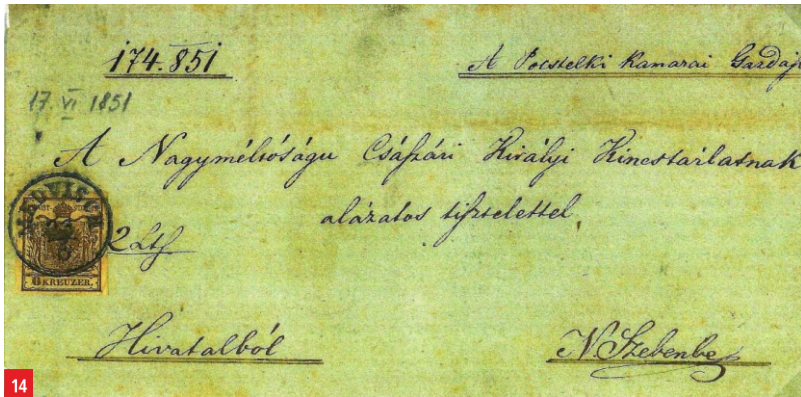 174.851
A Pocstelki Kamarai Gazdaj
17. VI 1851
A Nagyméltóságu Császári Királyi Kincstárlatnak
alázatos tisztelettel
2 Lth
6 KREUZER.
Hivatalból
N. Szebenbe
14